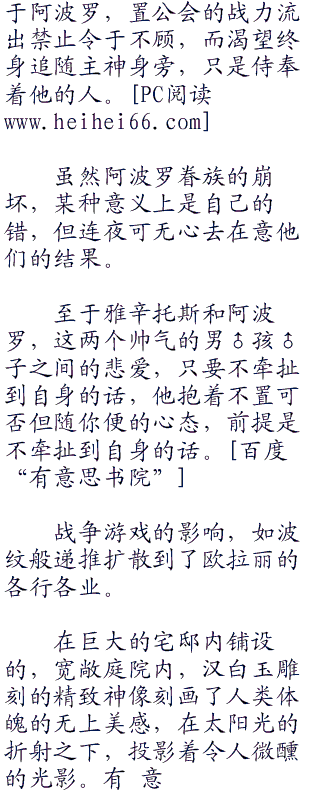 于阿波罗，置公会的战力流
出禁止令于不顾，而渴望终
身追随主神身旁，只是侍奉
着他的人。[PC阅读
www.heihei66.com]
虽然阿波罗眷族的崩
坏，某种意义上是自己的
错，但连夜可无心去在意他
们的结果。
至于雅辛托斯和阿波
罗，这两个帅气的男♂孩♂
子之间的悲爱，只要不牵扯
到自身的话，他抱着不置可
否但随你便的心态，前提是
不牵扯到自身的话。[百度
“有意思书院”]
战争游戏的影响，如波
纹般递推扩散到了欧拉丽的
各行各业。
在巨大的宅邸内铺设
的，宽敞庭院内，汉白玉雕
刻的精致神像刻画了人类体
魄的无上美感，在太阳光的
折射之下，投影着令人微醺
的光影。有 意